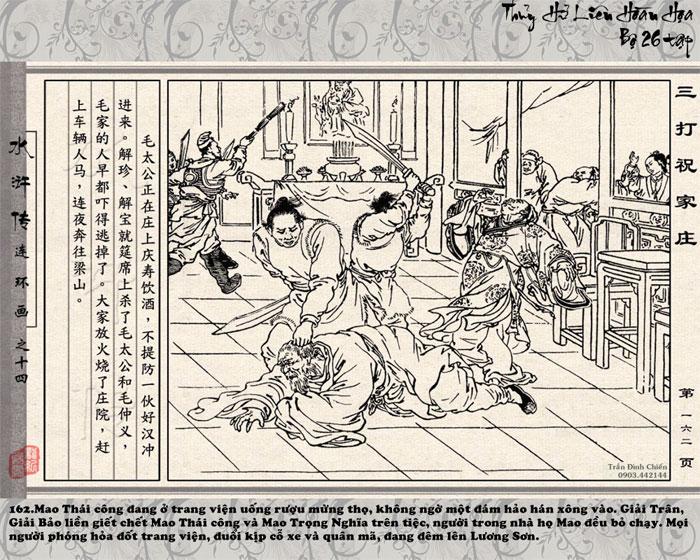 Thủy Hử Liên Hoàn Họa
Bộ 26 tập
水浒传连环画之十四
毛太公正在庄上庆寿饮酒，不提防一伙好汉冲
进来。解珍、解宝就筵席上杀了毛太公和毛仲义，
毛家的人早都吓得逃掉了。大家放火烧了庄院，赶
上车辆人马，连夜奔往梁山。
三打祝家庄
第一六二页
Trần Đình Chiến
0903.442144
162.Mao Thái công đang ở trang viện uống rượu mừng thọ, không ngờ một đám hảo hán xông vào. Giải Trân,
Giải Bảo liền giết chết Mao Thái công và Mao Trọng Nghĩa trên tiệc, người trong nhà họ Mao đều bỏ chạy. Mọi
người phóng hỏa đốt trang viện, đuổi kịp cỗ xe và quân mã, đang đêm lên Lương Sơn.